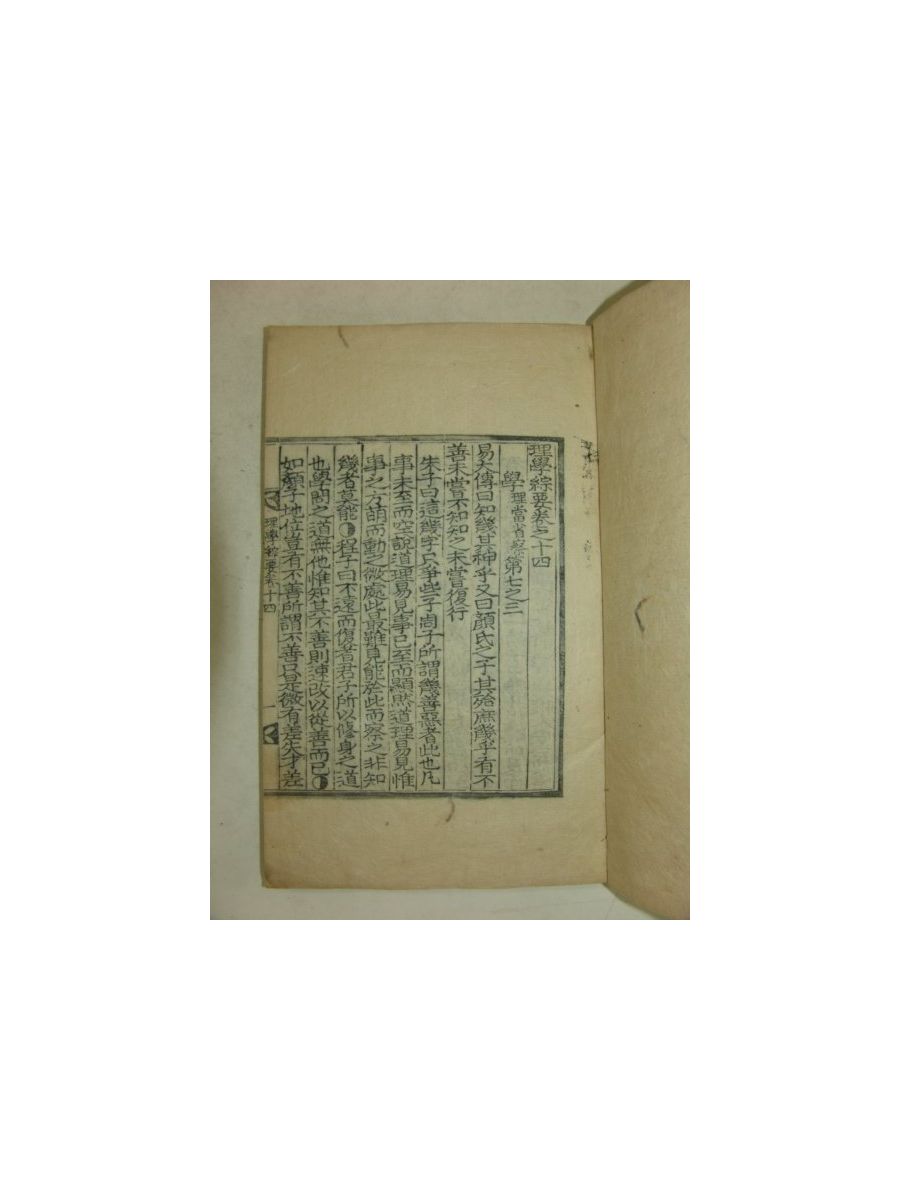 理學綜要卷之十四
學 理當省察第七之三
易大傳曰知幾其神乎又曰顏氏之子其殆庶幾乎有不
善未嘗不知知之未嘗復行
朱子曰這幾字只爭些子周子所謂幾善惡者此也凡
事未至而空說道理易見事已至而顯然道理易見惟
事之方萌而動之微處此最難見能於此而察之非知
幾者莫能 程子曰不遠而復者君子所以修身之道
也學問之道無他惟知其不善則速改以從善而已
如顏子地位豈有不善所謂不善只是微有差失才差
理學綜要卷十四 一